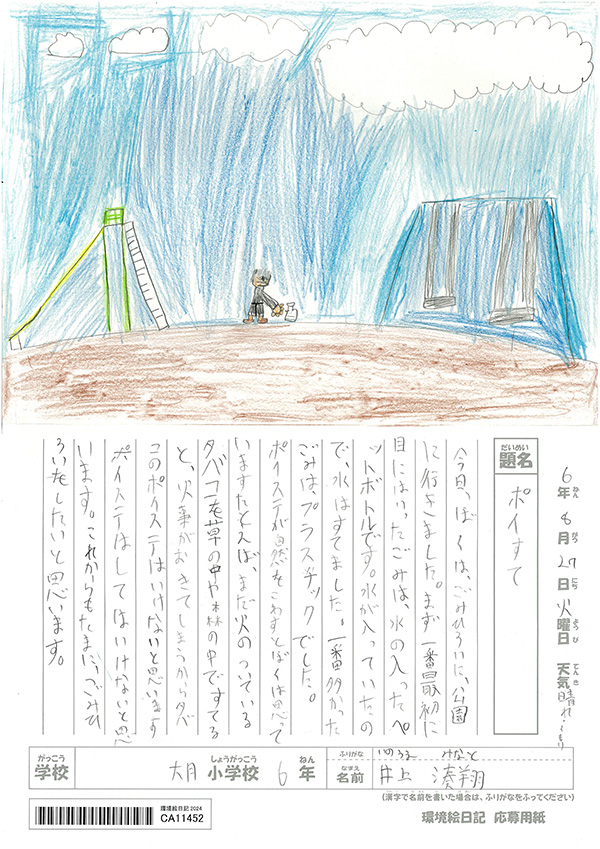 6年8月27日火曜日 天気晴れくもり
題名 ポイすて
今日、ぼくは、ごみひろいに、公園
に行きました。まず一番最初に
目にはいったごみは、水の入ったペ
ットボトルです。水が入っていたの
で、水はすてました。一番多かった
ごみは、プラスチックでした。
ポイステが自然をこわすとぼくは思って
いますたとえば、まだ火のついている
タバコを草の中や森の中ですてる
と、火事がおきてしまうからタバ
このポイステはいけないと思います
ポイステはしてはいけないと思
います。これからもたまに、ごみひ
ろいをしたいと思います。
がっこう しょうがっこう ねん
学校 大月小学校 6年
ふりがな いのうえ みなと
なまえ
名前 井上 湊翔
(漢字で名前を書いた場合は、ふりがなをふってください)
環境絵日記2024
CA11452
環境絵日記 応募用紙